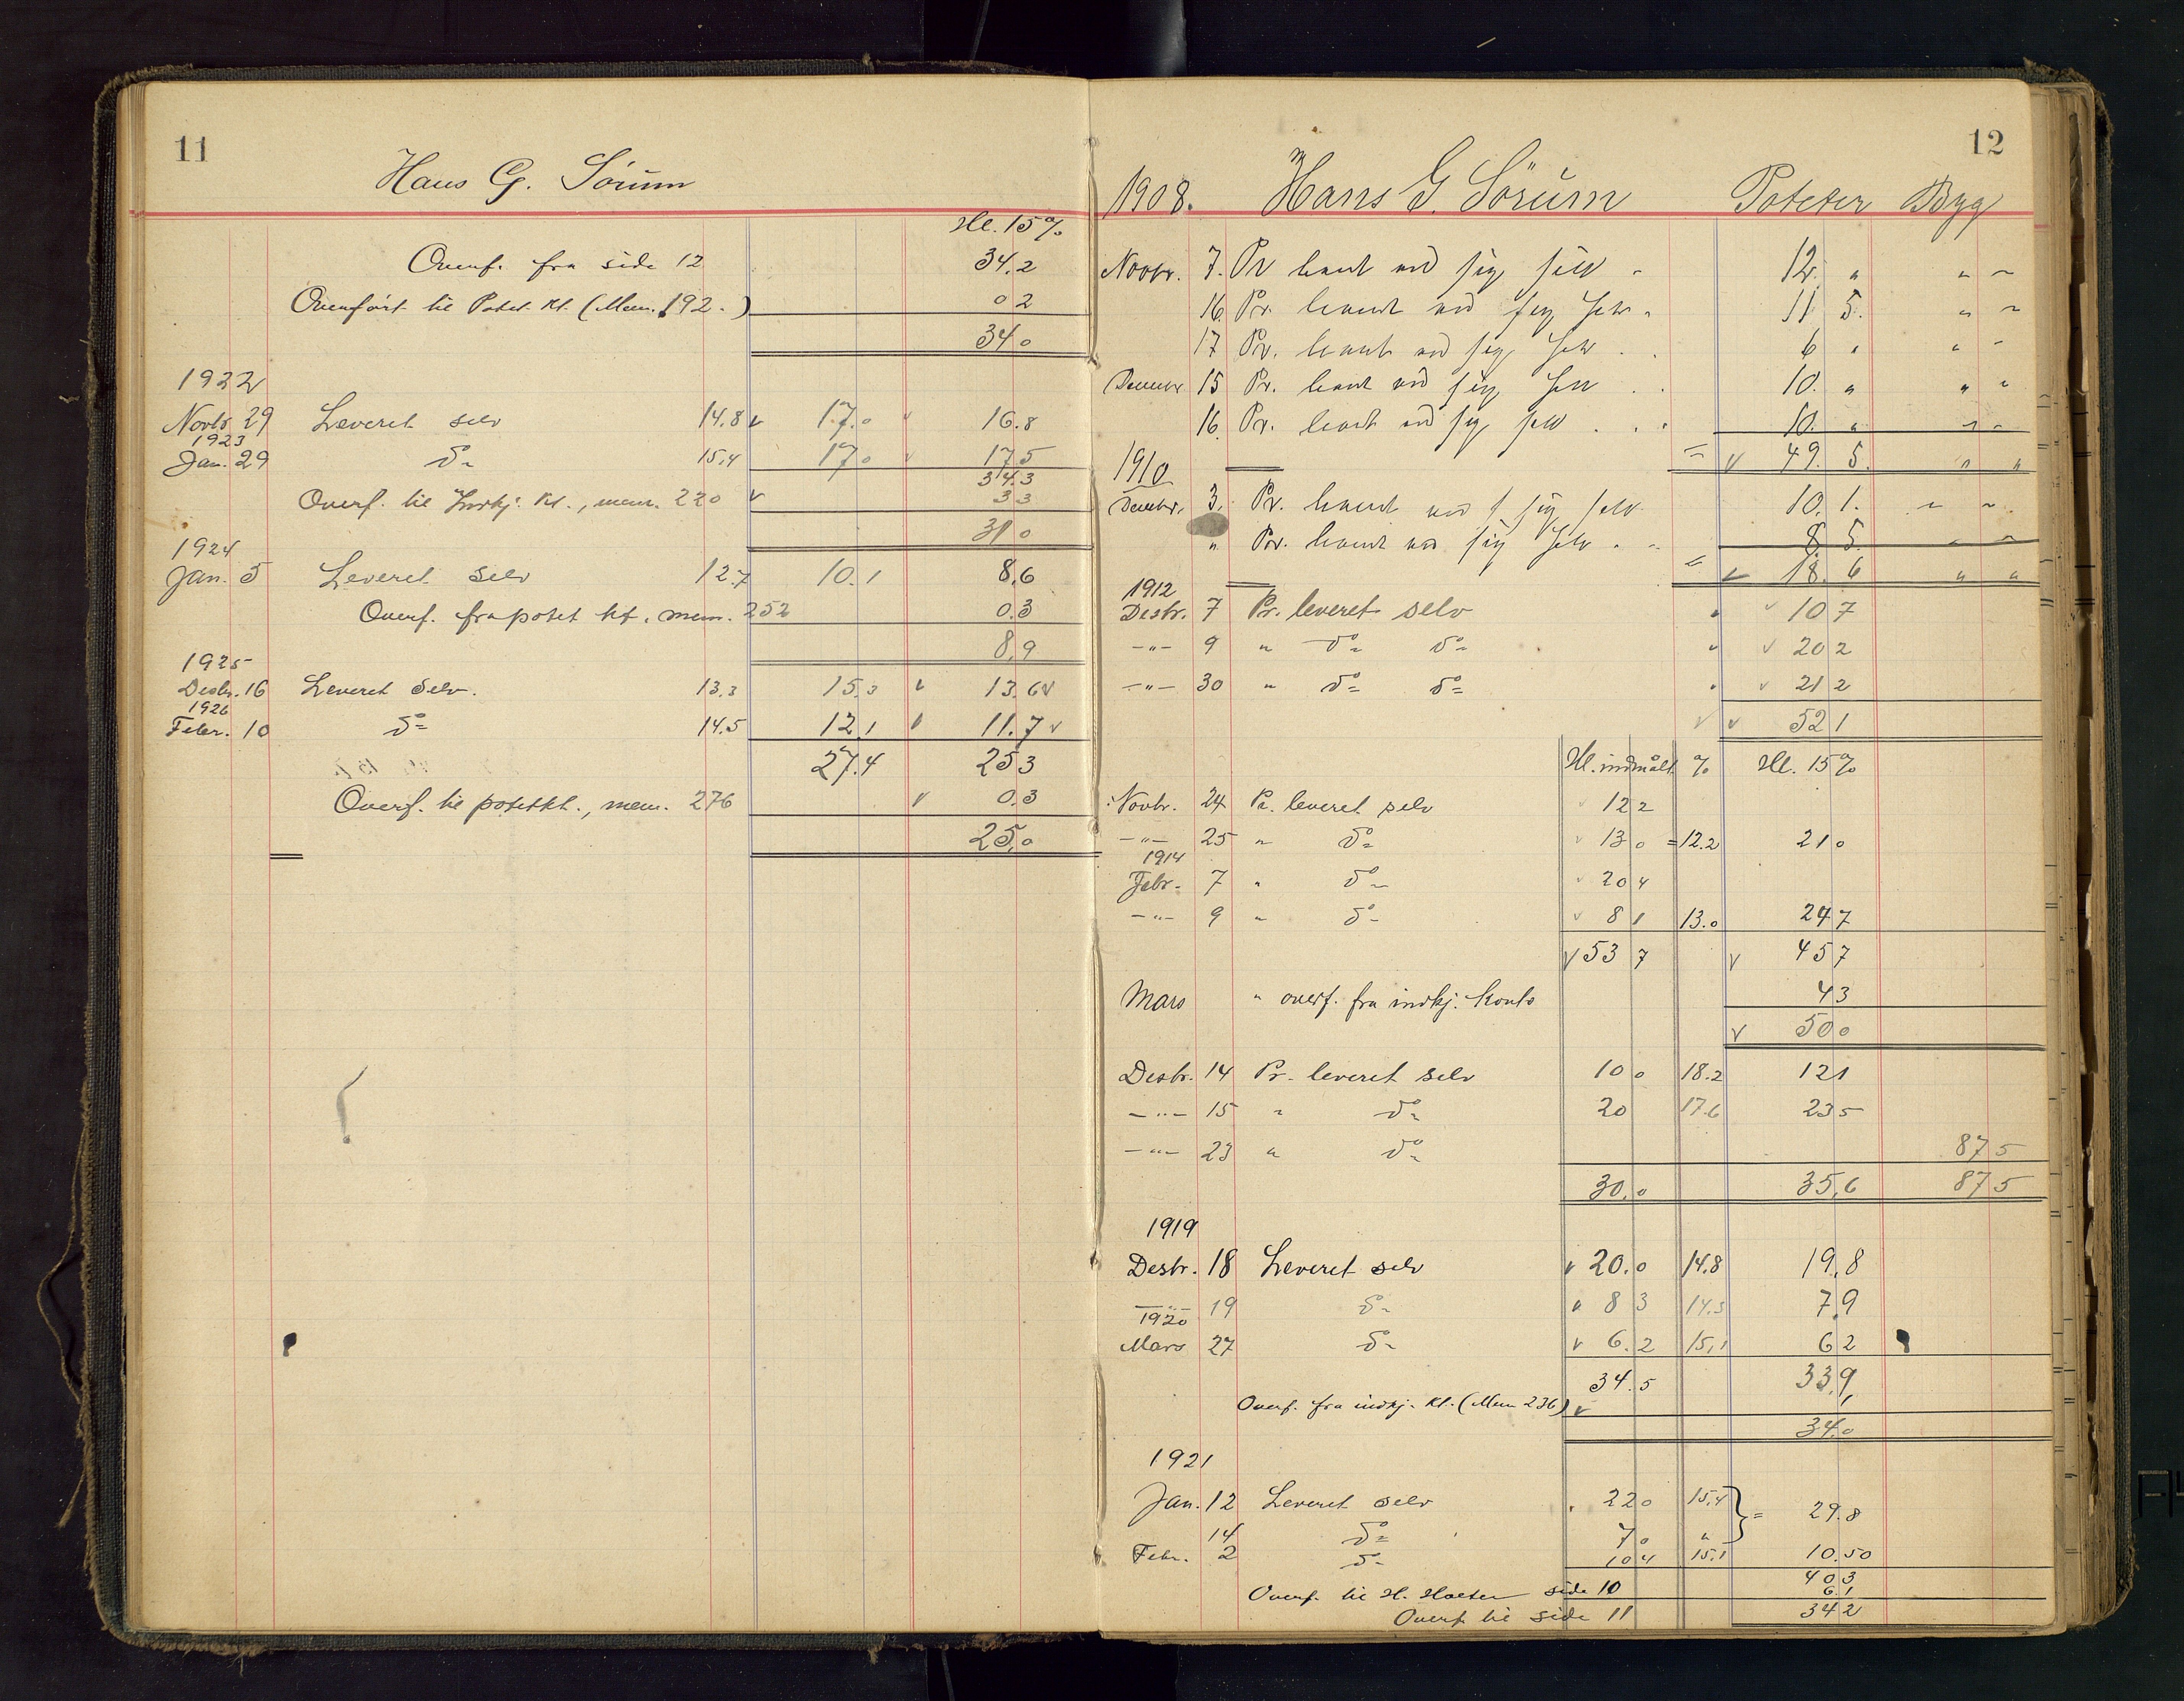 11
Hans G. Sörum
Hl. 15%
Overf. fra side 12 34.2
Overført til Potet. Kt. (Mem. 192.) 0 2
34 0
1922
Novbr 29 Leveret selv 14.8 17.0 16.8
1923
Jan. 29 do 15,4 17 0 17 5
34.3
Overf. til Indkj. Kt., mem. 220 3 3
31 0
1924
Jan. 5 Leveret selv 12.7 10.1 8,6
Overf. fra potet kt. mem. 252 0.3
8,9
1925
Desbr. 16 Leveret Selv. 13.3 15.3 13.6
1926
Febr. 10 do 14.5 12,1 11.7
27.4 25 3
Overf. til potetkt., mem. 276 0.3
25,0
12
1908. Hans G. Sörum Poteter Byg
Novbr. 7. Pr levert ved sig selv 12. " " "
16. Pr. levert ved sig selv 11 5. " "
17 Pr. levert ved sig selv 6 " " "
Decembr 15 Pr. levert ved sig selv 10. " " "
16. Pr. levert ved sig selv 10. " " "
= 49. 5. " "
1910
Decembr. 3. Pr. levert ved sig selv 10. 1. " "
" Pr. levert ved sig selv 8 5 " "
= 18. 6 " "
1912
Desbr. 7 Pr. leveret selv " 10 7
-"- 9 " do do " 20 2
-"- 30 " do do " 21 2
52 1
Hl. indmålt % Hl. 15%
Novbr. 24 Pr. leveret selv 12 2
-"- 25 " do 13 0 =12.2 21 0
1914
Febr. 7 " do 20 4
-"- 9 " do 8 1 13.0 24 7
53 7 45 7
Mars " overf. fra indkj. Konto 4 3
50 0
Desbr. 14 Pr. leveret selv 10 0 18.2 12 1
-"- 15 " do 20 17.6 23 5
-"- 23 " do 87 5
30,0 35,6 87 5
1919
Desbr. 18 Leveret selv 20.0 14.8 19,8
-"- 19 do 8 3 14.3 7,9
1920
Mars 27 do 6.2 15,1 6 2
34.5 33,9
Overf. fra indkj. Kt. (Mem 236) ,1
34.0
1921
Jan. 12 Leveret selv 22 0 15,4 } = 29.8
14 do 7 0 "
Febr. 2 do 10 4 15.1 10.50
40 3
Overf. til H. Holter side 10 6.1
Overf. til side 11 34 2